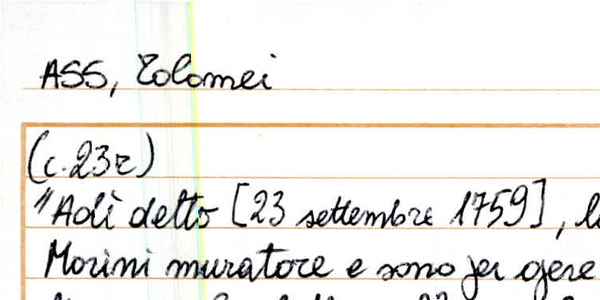 ASS, Tolomei
(c.23r)
"Adì detto [23 settembre 1759],
Morini muratore e sono per opere